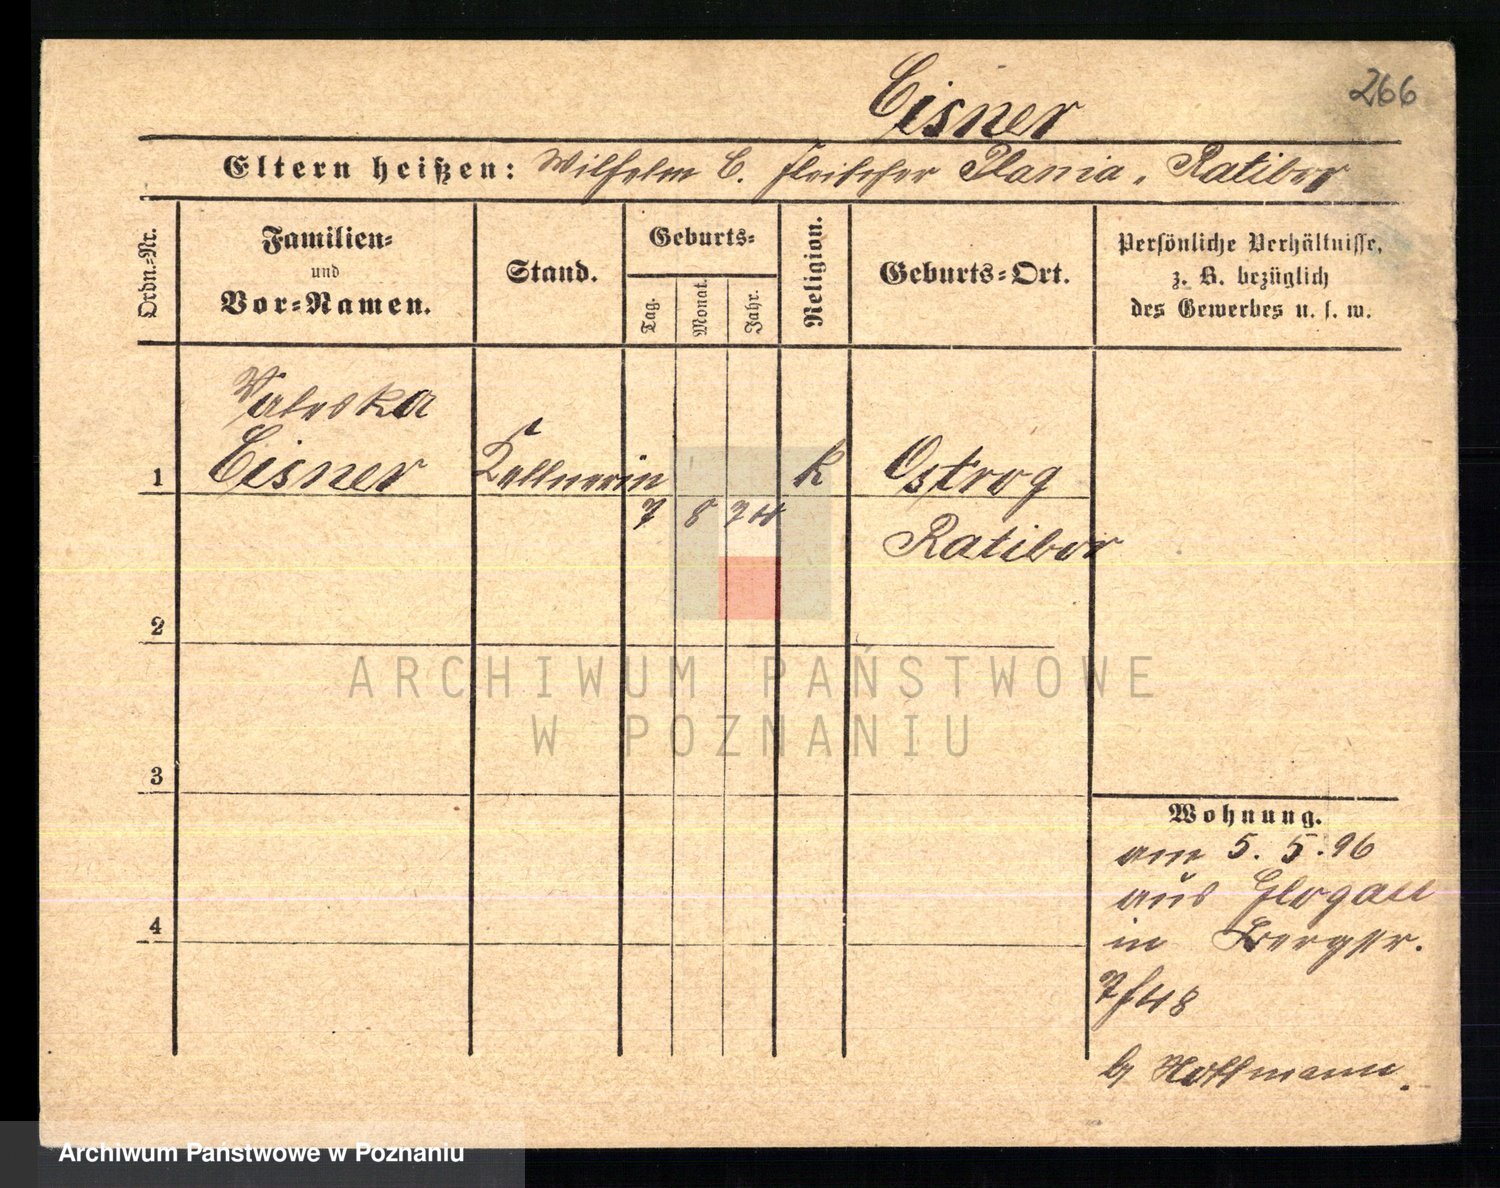 266
Eisner
Eltern heißen: Wilhelm E. Fleischer Plania, Ratibor
Ordn.=Nr.
Familien=
und
Vor=Namen.
Stand.
Geburts=
Tag.
Monat.
Jahr.
Religion.
Geburts=Ort.
Persönliche Verhältnisse,
z. B. bezüglich
des Gewerbes u. s. w.
Valeska
1 Eisner Kellnerin k Ostrog
7 8 74
Ratibor
2
3
4
Wohnung.
am 5. 5. 96
aus Glogau
in Bergstr.
b/ Hoffmann.
ARCHIWUM PAŃSTWOWE
W POZNANIU
Archiwum Państwowe w Poznaniu